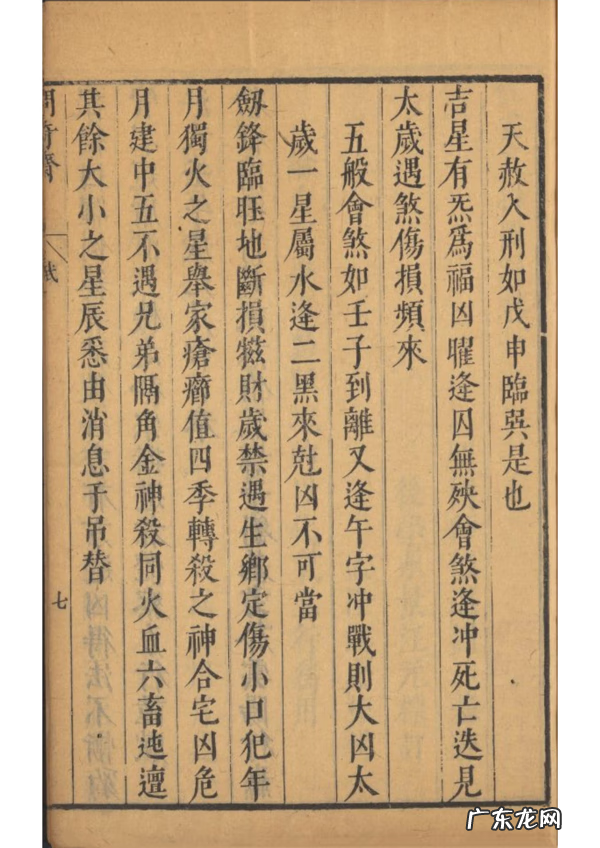 天赦入刑如戊申臨巽是也
吉星有炁爲福凶曜逢囚無殃會煞逢冲死亡迭見
太歲遇煞傷損頻來
五般會煞如壬子到離又逢午字冲戰則大凶太
歲一星屬水逢二黑來尅凶不可當
劔鋒臨旺地斷損㽧財歲禁遇生鄉定傷小口犯年
月獨火之星舉家瘡癤值四季轉殺之神合宅凶危
月建中五不遇兄弟隔角金神殺同火血六畜迍邅
其餘大小之星辰悉由消息于吊替
七
广东龙网